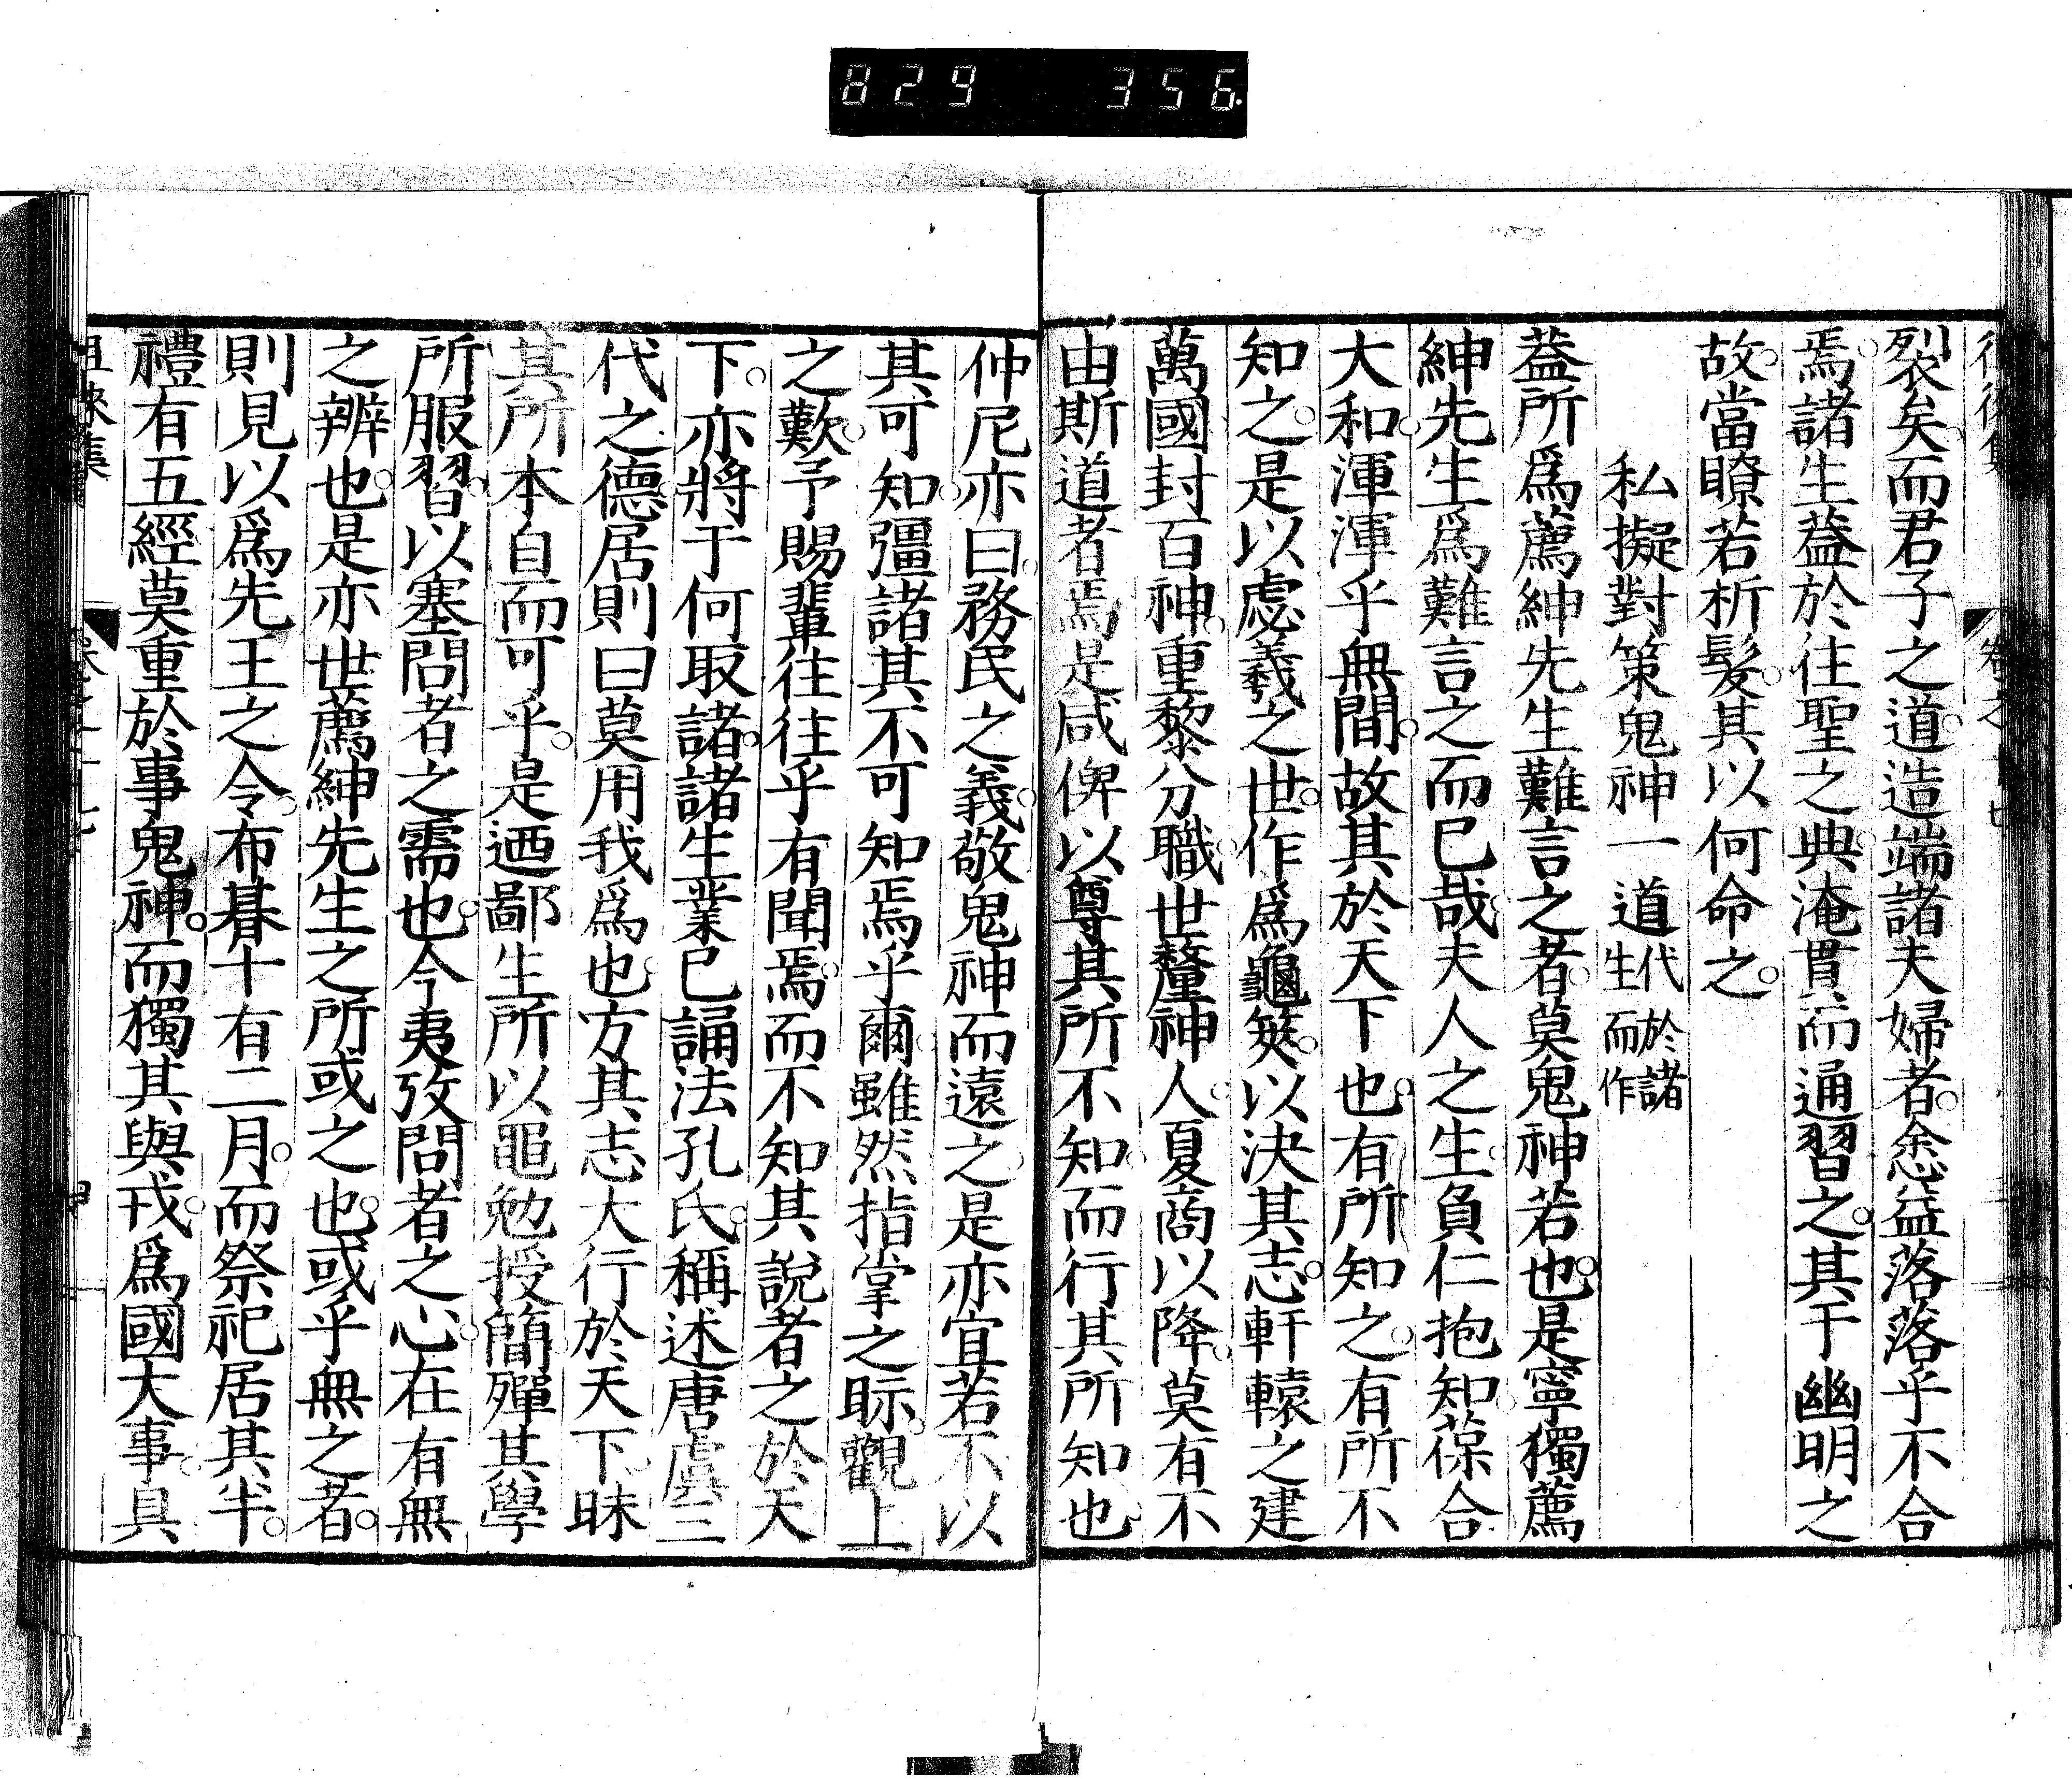 829 356
裂矣而君子之道造端諸夫婦者悆益落落乎不合
焉諸生益於往聖之典淹貫而通習之其于幽明之
故當瞭若析髮其以何命之
私擬對策鬼神一道代於諸生而作
蓋所爲薦紳先生難言之者莫鬼神若也是寧獨薦
紳先生爲難言之而已哉夫人之生負仁抱知葆合
大和渾渾乎無間故其於天下也有所知之有所不
知之是以虙羲之世作爲龜筴以決其志軒轅之建
萬國封百神重黎分職世釐神人夏商以降莫有不
由斯道者焉是咸俾以尊其所不知而行其所知也
仲尼亦曰務民之義敬鬼神而遠之是亦宜若不以
其可知彊諸其不可知焉乎爾雖然指掌之眎觀上
之歎予賜輩往往乎有聞焉而不知其說者之於天
下亦將于何取諸諸生業已誦法孔氏稱述唐虞三
代之德居則曰莫用我爲也方其志大行於天下昧
其所本自而可乎是迺鄙生所以黽勉授簡殫其學
所服習以塞問者之需也今夷攷問者之心在有無
之辨也是亦世薦紳先生之所或之也或乎無之者
則見以爲先王之令布朞十有二月而祭祀居其半
禮有五經莫重於事鬼神而獨其與戎爲國大事具
徂徠集